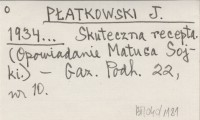 0
PŁATKOWSKI J.
1934... Skuteczna recepta.
(Opowiadanie Matusa Soj-
ki.) – Gaz. Podh. 22,
nr 10.